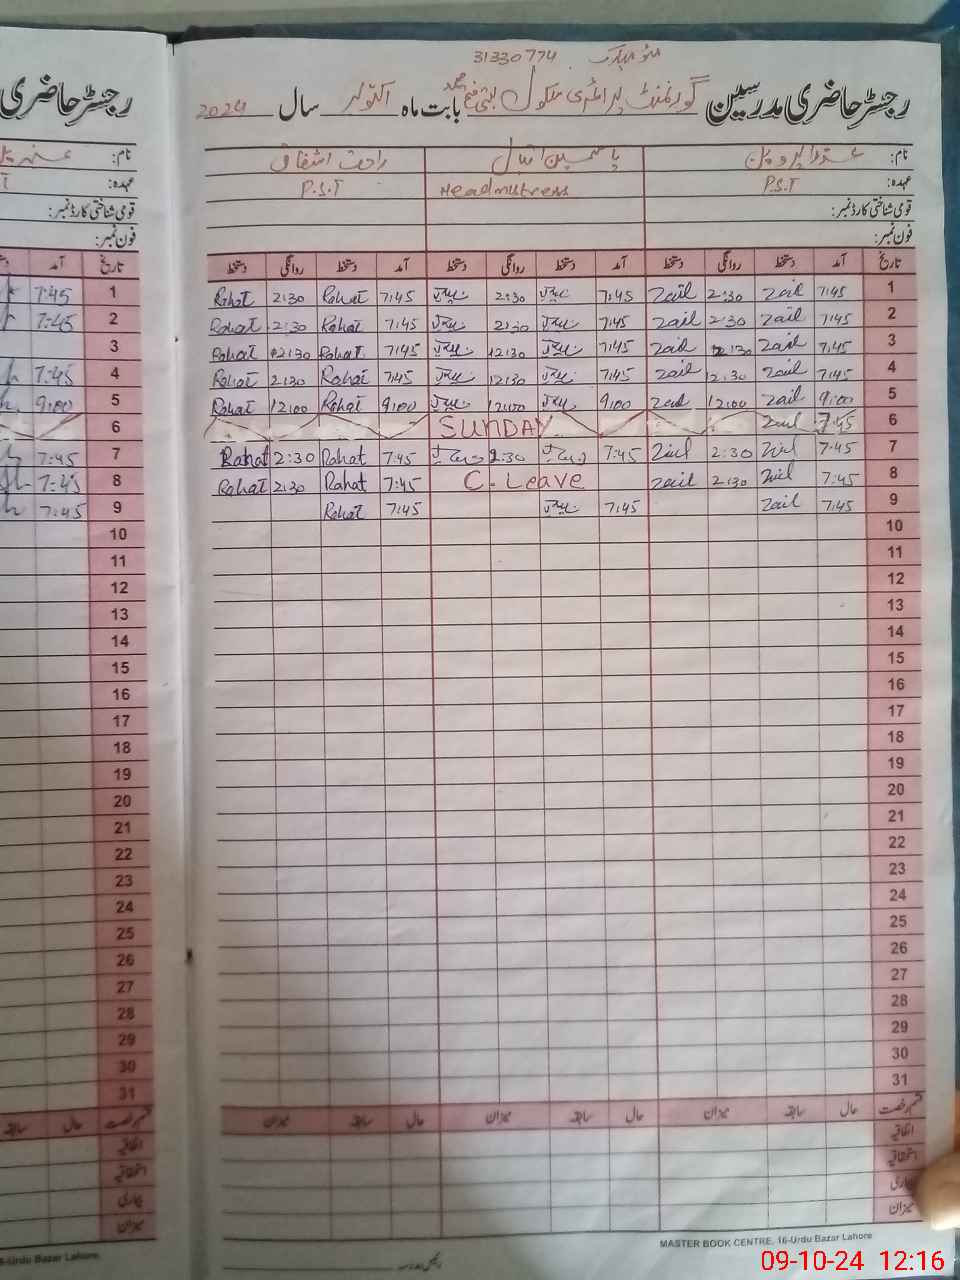 31330774
رجسٹر حاضری مدرسین گورنمنٹ پرائمری سکول بابت ماہ اکتوبر سال 2024
نام: راحت اشفاق
عہدہ: P.S.T Headmistress P.S.T
قومی شناختی کارڈ نمبر:
فون نمبر:
تاریخ آمد دستخط روانگی دستخط آمد دستخط روانگی دستخط آمد دستخط روانگی دستخط
1 7:45 Zail 2:30 Zail 7:45 2:30 7:45 Rahat 2:30 Rahat
2 7:45 Zail 2:30 Zail 7:45 2:30 7:45 Rahat 2:30 Rahat
3 7:45 Zail 12:30 Zail 7:45 12:30 7:45 Rahat 12:30 Rahat
4 7:45 Zail 12:30 Zail 7:45 12:30 7:45 Rahat 2:30 Rahat
5 9:00 Zail 12:00 Zail 9:00 12:00 9:00 Rahat 12:00 Rahat
6 7:45 Zail SUNDAY
7 7:45 Zail 2:30 Zail 7:45 2:30 7:45 Rahat 2:30 Rahat
8 7:45 Zail 2:30 Zail C. Leave 7:45 Rahat 2:30 Rahat
9 7:45 Zail 7:45 7:45 Rahat
10
11
12
13
14
15
16
17
18
19
20
21
22
23
24
25
26
27
28
29
30
31
قسم رخصت حال سابقہ میزان حال سابقہ میزان حال سابقہ میزان
اتفاقیہ
استحقاقیہ
بیماری
میزان
MASTER BOOK CENTRE, 16-Urdu Bazar Lahore
رجسٹر حاضری
آمد تاریخ
7:45 1
7:45 2
3
7:45 4
9:00 5
6
7:45 7
7:45 8
7:45 9
10
11
12
13
14
15
16
17
18
19
20
21
22
23
24
25
26
27
28
29
30
31
قسم رخصت حال سابقہ
اتفاقیہ
استحقاقیہ
بیماری
میزان
-Urdu Bazar Lahore
09-10-24 12:16